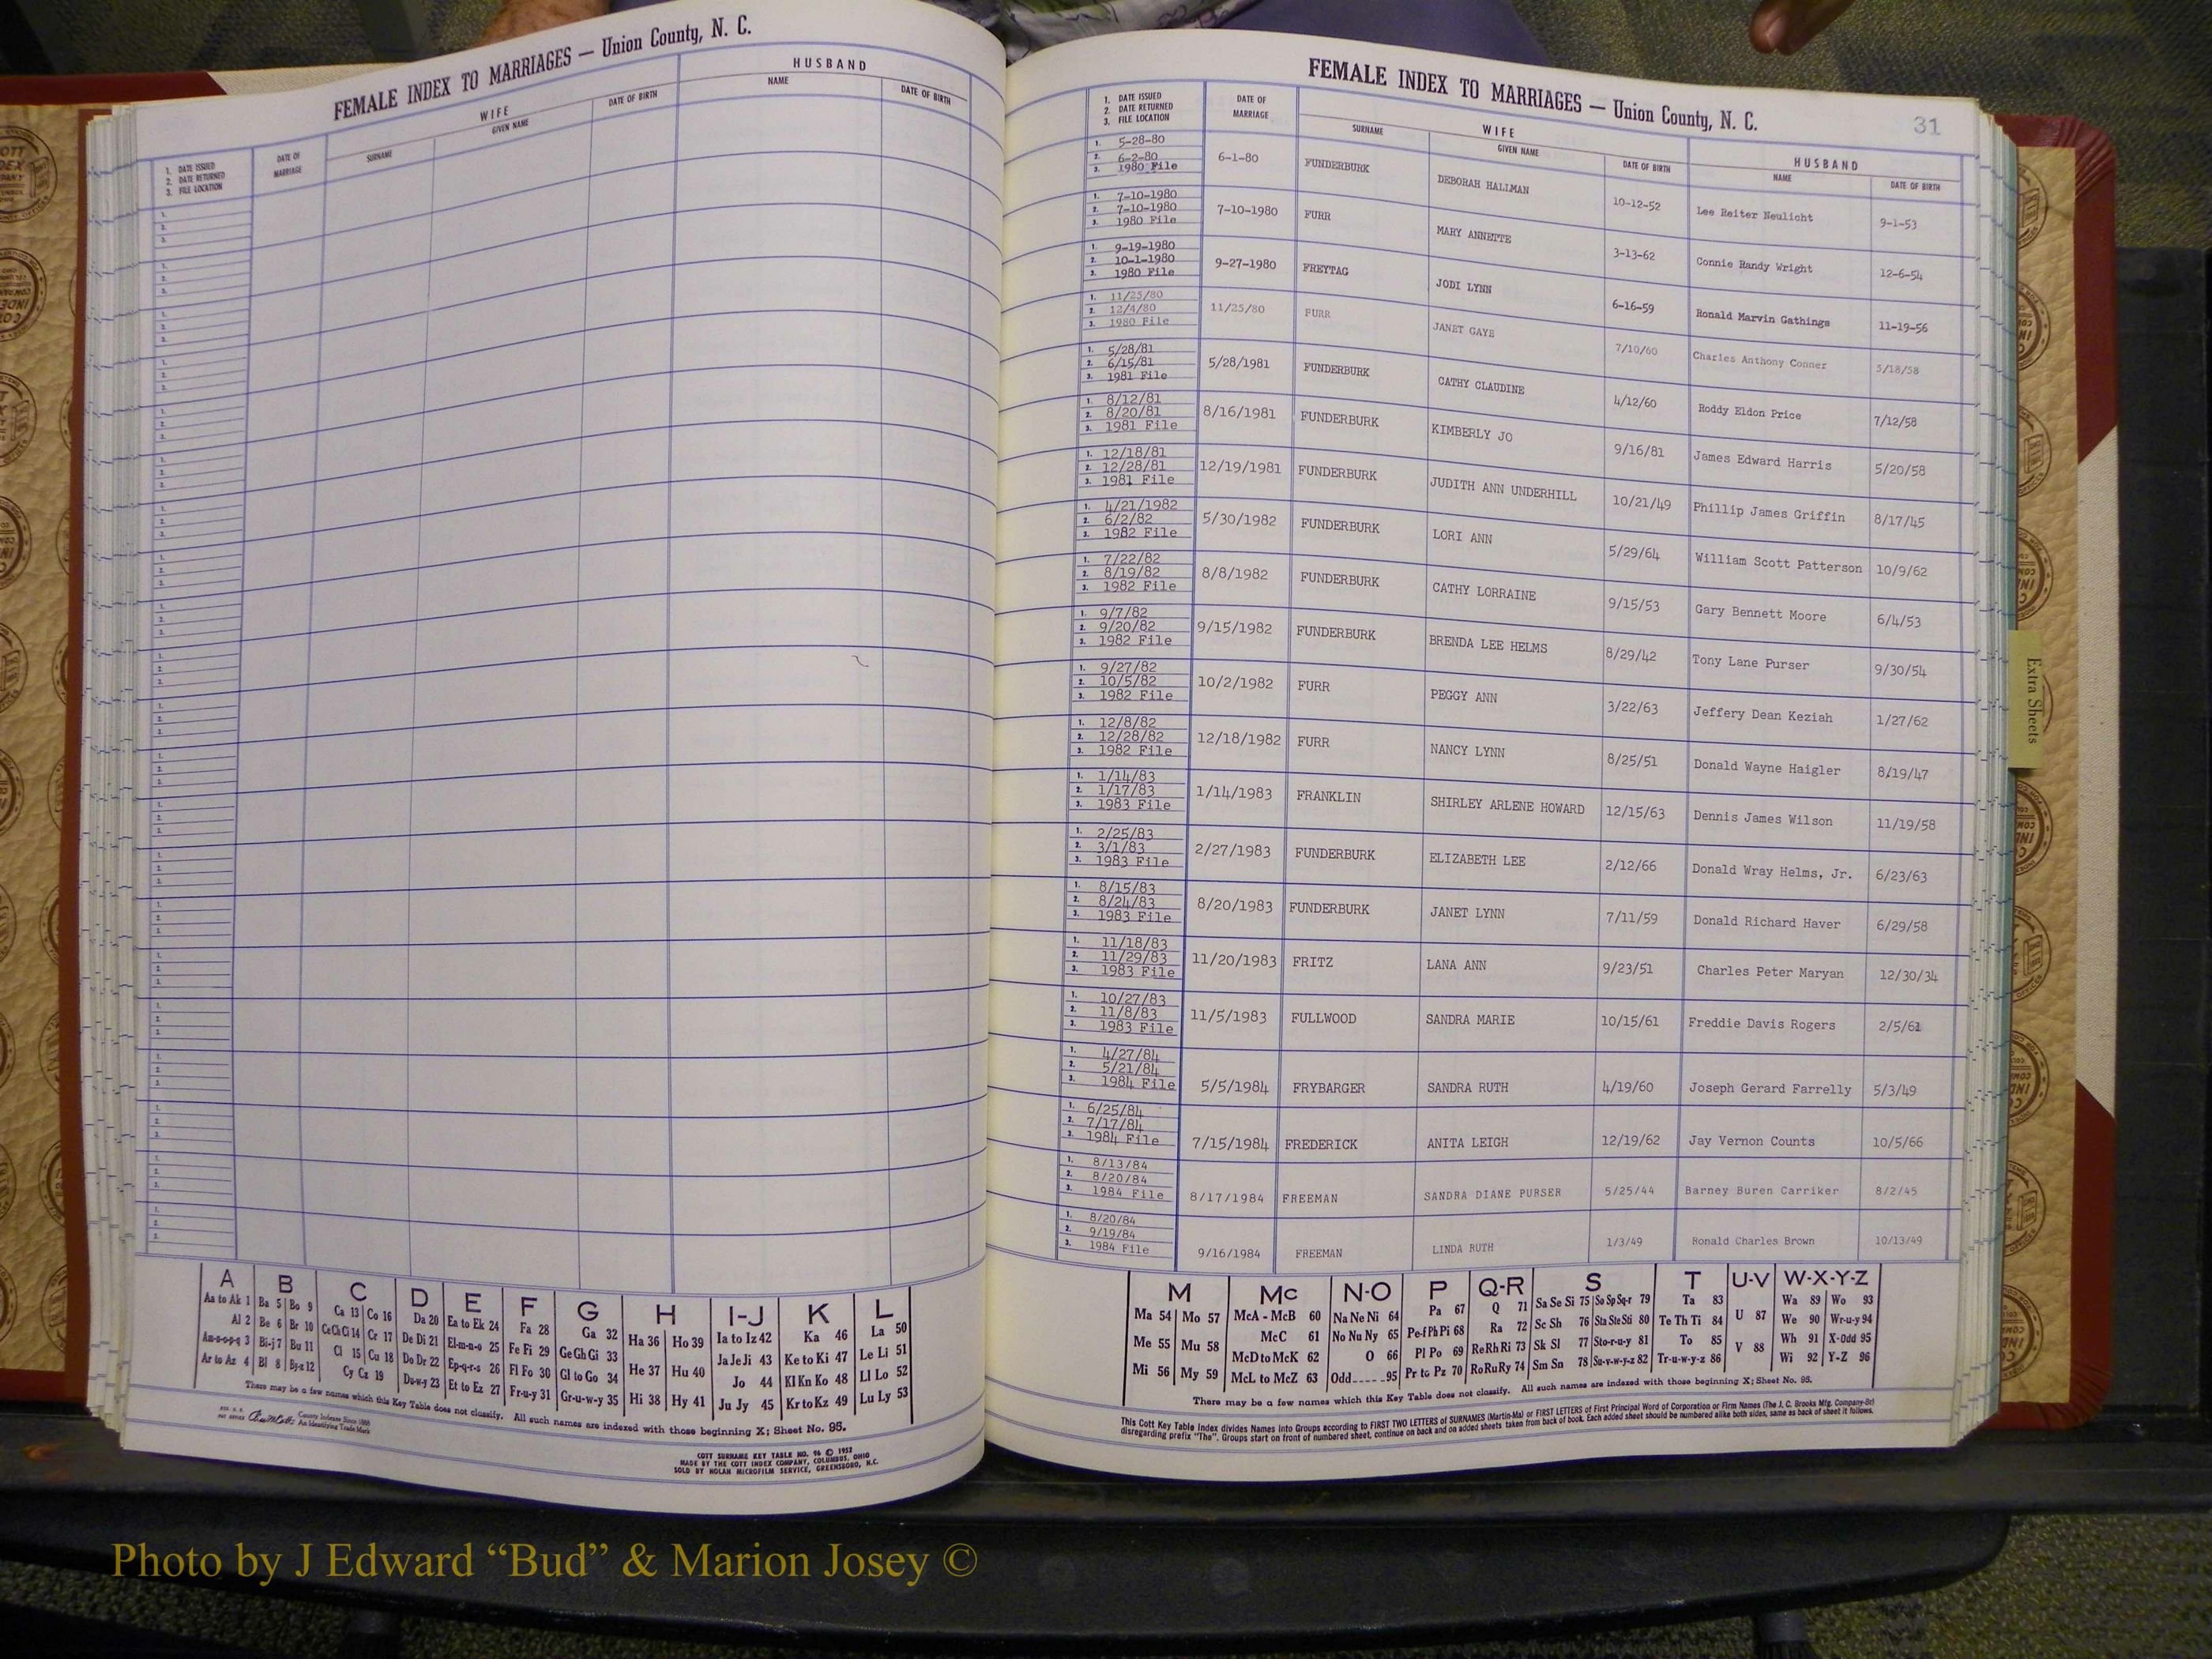 FEMALE INDEX TO MARRIAGES — Union County, N. C.
WIFE
HUSBAND
1. DATE ISSUED
2. DATE RETURNED
3. FILE LOCATION
DATE OF MARRIAGE
SURNAME
GIVEN NAME
DATE OF BIRTH
NAME
DATE OF BIRTH
A B C D E F G H I-J K L
Aa to Ak 1 Ba 5 Bo 9 Ca 13 Co 16 Da 20 Ea to Ek 24 Fa 28 Ga 32 Ha 36 Ho 39 Ia to Iz 42 Ka 46 La 50
Al 2 Be 6 Br 10 Ce Ch Ci 14 Cr 17 De Di 21 El-m-n-o 25 Fe Fi 29 Ge Gh Gi 33 Ja Je Ji 43 Ke to Ki 47 Le Li 51
Am-n-o-p-q 3 Bi-j 7 Bu 11 Cl 15 Cu 18 Do Dr 22 Ep-q-r-s 26 Fl Fo 30 Gl to Go 34 He 37 Hu 40 Jo 44 Kl Kn Ko 48 Ll Lo 52
Ar to Az 4 Bl 8 By-z 12 Cy Cz 19 Du-w-y 23 Et to Ez 27 Fr-u-y 31 Gr-u-w-y 35 Hi 38 Hy 41 Ju Jy 45 Kr to Kz 49 Lu Ly 53
There may be a few names which this Key Table does not classify. All such names are indexed with those beginning X; Sheet No. 95.
County Indexes Since 1888
An Identifying Trade Mark
COTT SURNAME KEY TABLE NO. 96 © 1952
MADE BY THE COTT INDEX COMPANY, COLUMBUS, OHIO
SOLD BY NOLAN MICROFILM SERVICE, GREENSBORO, N.C.
FEMALE INDEX TO MARRIAGES — Union County, N. C.
31
1. DATE ISSUED
2. DATE RETURNED
3. FILE LOCATION
DATE OF MARRIAGE
WIFE
SURNAME
GIVEN NAME
DATE OF BIRTH
HUSBAND
NAME
DATE OF BIRTH
1. 5-28-80
2. 6-2-80
3. 1980 File
6-1-80 FUNDERBURK DEBORAH HALLMAN 10-12-52 Lee Reiter Neulicht 9-1-53
1. 7-10-1980
2. 7-10-1980
3. 1980 File
7-10-1980 FURR MARY ANNETTE 3-13-62 Connie Randy Wright 12-6-54
1. 9-19-1980
2. 10-1-1980
3. 1980 File
9-27-1980 FREYTAG JODI LYNN 6-16-59 Ronald Marvin Gathings 11-19-56
1. 11/25/80
2. 12/4/80
3. 1980 File
11/25/80 FURR JANET GAYE 7/10/60 Charles Anthony Conner 5/18/58
1. 5/28/81
2. 6/15/81
3. 1981 File
5/28/1981 FUNDERBURK CATHY CLAUDINE 4/12/60 Roddy Eldon Price 7/12/58
1. 8/12/81
2. 8/20/81
3. 1981 File
8/16/1981 FUNDERBURK KIMBERLY JO 9/16/81 James Edward Harris 5/20/58
1. 12/18/81
2. 12/28/81
3. 1981 File
12/19/1981 FUNDERBURK JUDITH ANN UNDERHILL 10/21/49 Phillip James Griffin 8/17/45
1. 4/21/1982
2. 6/2/82
3. 1982 File
5/30/1982 FUNDERBURK LORI ANN 5/29/64 William Scott Patterson 10/9/62
1. 7/22/82
2. 8/19/82
3. 1982 File
8/8/1982 FUNDERBURK CATHY LORRAINE 9/15/53 Gary Bennett Moore 6/4/53
1. 9/7/82
2. 9/20/82
3. 1982 File
9/15/1982 FUNDERBURK BRENDA LEE HELMS 8/29/42 Tony Lane Purser 9/30/54
1. 9/27/82
2. 10/5/82
3. 1982 File
10/2/1982 FURR PEGGY ANN 3/22/63 Jeffery Dean Keziah 1/27/62
1. 12/8/82
2. 12/28/82
3. 1982 File
12/18/1982 FURR NANCY LYNN 8/25/51 Donald Wayne Haigler 8/19/47
1. 1/14/83
2. 1/17/83
3. 1983 File
1/14/1983 FRANKLIN SHIRLEY ARLENE HOWARD 12/15/63 Dennis James Wilson 11/19/58
1. 2/25/83
2. 3/1/83
3. 1983 File
2/27/1983 FUNDERBURK ELIZABETH LEE 2/12/66 Donald Wray Helms, Jr. 6/23/63
1. 8/15/83
2. 8/24/83
3. 1983 File
8/20/1983 FUNDERBURK JANET LYNN 7/11/59 Donald Richard Haver 6/29/58
1. 11/18/83
2. 11/29/83
3. 1983 File
11/20/1983 FRITZ LANA ANN 9/23/51 Charles Peter Maryan 12/30/34
1. 10/27/83
2. 11/8/83
3. 1983 File
11/5/1983 FULLWOOD SANDRA MARIE 10/15/61 Freddie Davis Rogers 2/5/61
1. 4/27/84
2. 5/21/84
3. 1984 File
5/5/1984 FRYBARGER SANDRA RUTH 4/19/60 Joseph Gerard Farrelly 5/3/49
1. 6/25/84
2. 7/17/84
3. 1984 File
7/15/1984 FREDERICK ANITA LEIGH 12/19/62 Jay Vernon Counts 10/5/66
1. 8/13/84
2. 8/20/84
3. 1984 File
8/17/1984 FREEMAN SANDRA DIANE PURSER 5/25/44 Barney Buren Carriker 8/2/45
1. 8/20/84
2. 9/19/84
3. 1984 File
9/16/1984 FREEMAN LINDA RUTH 1/3/49 Ronald Charles Brown 10/13/49
Extra Sheets
M Mc N-O P Q-R S T U-V W-X-Y-Z
Ma 54 Mo 57 McA - McB 60 Na Ne Ni 64 Pa 67 Q 71 Sa Se Si 75 So Sp Sq-r 79 Ta 83 U 87 Wa 89 Wo 93
Me 55 Mu 58 McC 61 No Nu Ny 65 Pe-f Ph Pi 68 Ra 72 Sc Sh 76 Sta Ste Sti 80 Te Th Ti 84 We 90 Wr-u-y 94
McD to McK 62 O 66 Pl Po 69 Re Rh Ri 73 Sk Sl 77 Sto-r-u-y 81 To 85 V 88 Wh 91 X-Odd 95
Mi 56 My 59 McL to McZ 63 Odd 95 Pr to Pz 70 Ro Ru Ry 74 Sm Sn 78 Su-v-w-y-z 82 Tr-u-w-y-z 86 Wi 92 Y-Z 96
There may be a few names which this Key Table does not classify. All such names are indexed with those beginning X; Sheet No. 95.
This Cott Key Table Index divides Names into Groups according to FIRST TWO LETTERS of SURNAMES (Martin-Ma) or FIRST LETTERS of First Principal Word of Corporation or Firm Names (The J. C. Brooks Mfg. Company-Br)
disregarding prefix "The". Groups start on front of numbered sheet, continue on back and on added sheets taken from back of book. Each added sheet should be numbered alike both sides, same as back of sheet it follows.
Photo by J Edward “Bud” & Marion Josey ©